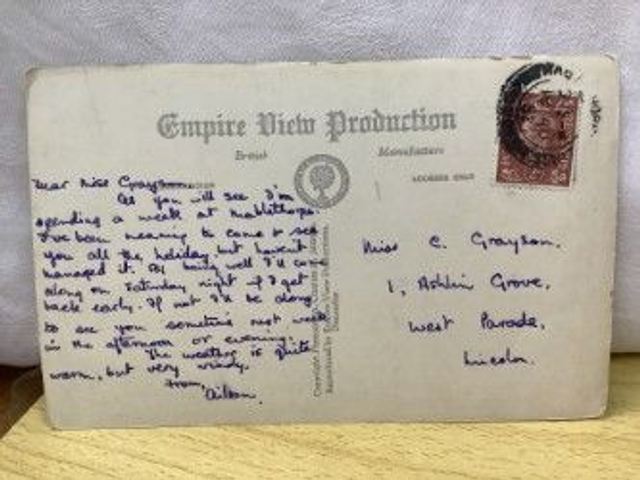 Empire View Production
British Manufacture
ADDRESS ONLY
Dear Miss Grayson
As you will see I'm
spending a week at Mablethorpe.
I've been meaning to come to see
you all the holiday, but haven't
managed it. All being well I'll come
along on Saturday night if I get
back early. If not I'll be along
to see you sometime next week
in the afternoon or evening.
The weather is quite
warm, but very windy.
From,
Miss C. Grayson.
1, Ashlin Grove,
West Parade,
Lincoln.